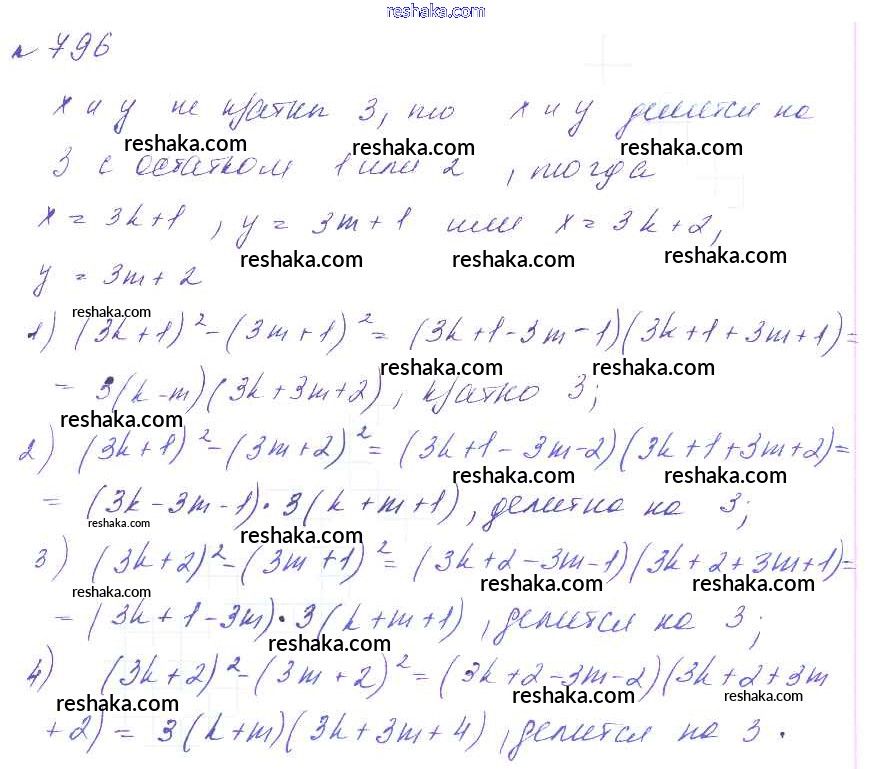 reshaka.com
№ 796
x и y не кратны 3, то x и y делится на
reshaka.com reshaka.com reshaka.com
3 с остатком 1 или 2, тогда
x = 3k+1, y = 3m+1 или x = 3k+2,
reshaka.com reshaka.com reshaka.com
y = 3m+2
reshaka.com
1) (3k+1)²-(3m+1)² = (3k+1-3m-1)(3k+1+3m+1)=
reshaka.com reshaka.com
= 3(k-m)(3k+3m+2), кратно 3;
reshaka.com
2) (3k+1)²-(3m+2)² = (3k+1-3m-2)(3k+1+3m+2)=
reshaka.com reshaka.com
= (3k-3m-1)·3(k+m+1), делитна на 3;
reshaka.com reshaka.com
3) (3k+2)²-(3m+1)² = (3k+2-3m-1)(3k+2+3m+1)=
reshaka.com reshaka.com
= (3k+1-3m)·3(k+m+1), делится на 3;
reshaka.com
4) (3k+2)²-(3m+2)² = (3k+2-3m-2)(3k+2+3m
reshaka.com reshaka.com reshaka.com
+2) = 3(k+m)(3k+3m+4), делится на 3.